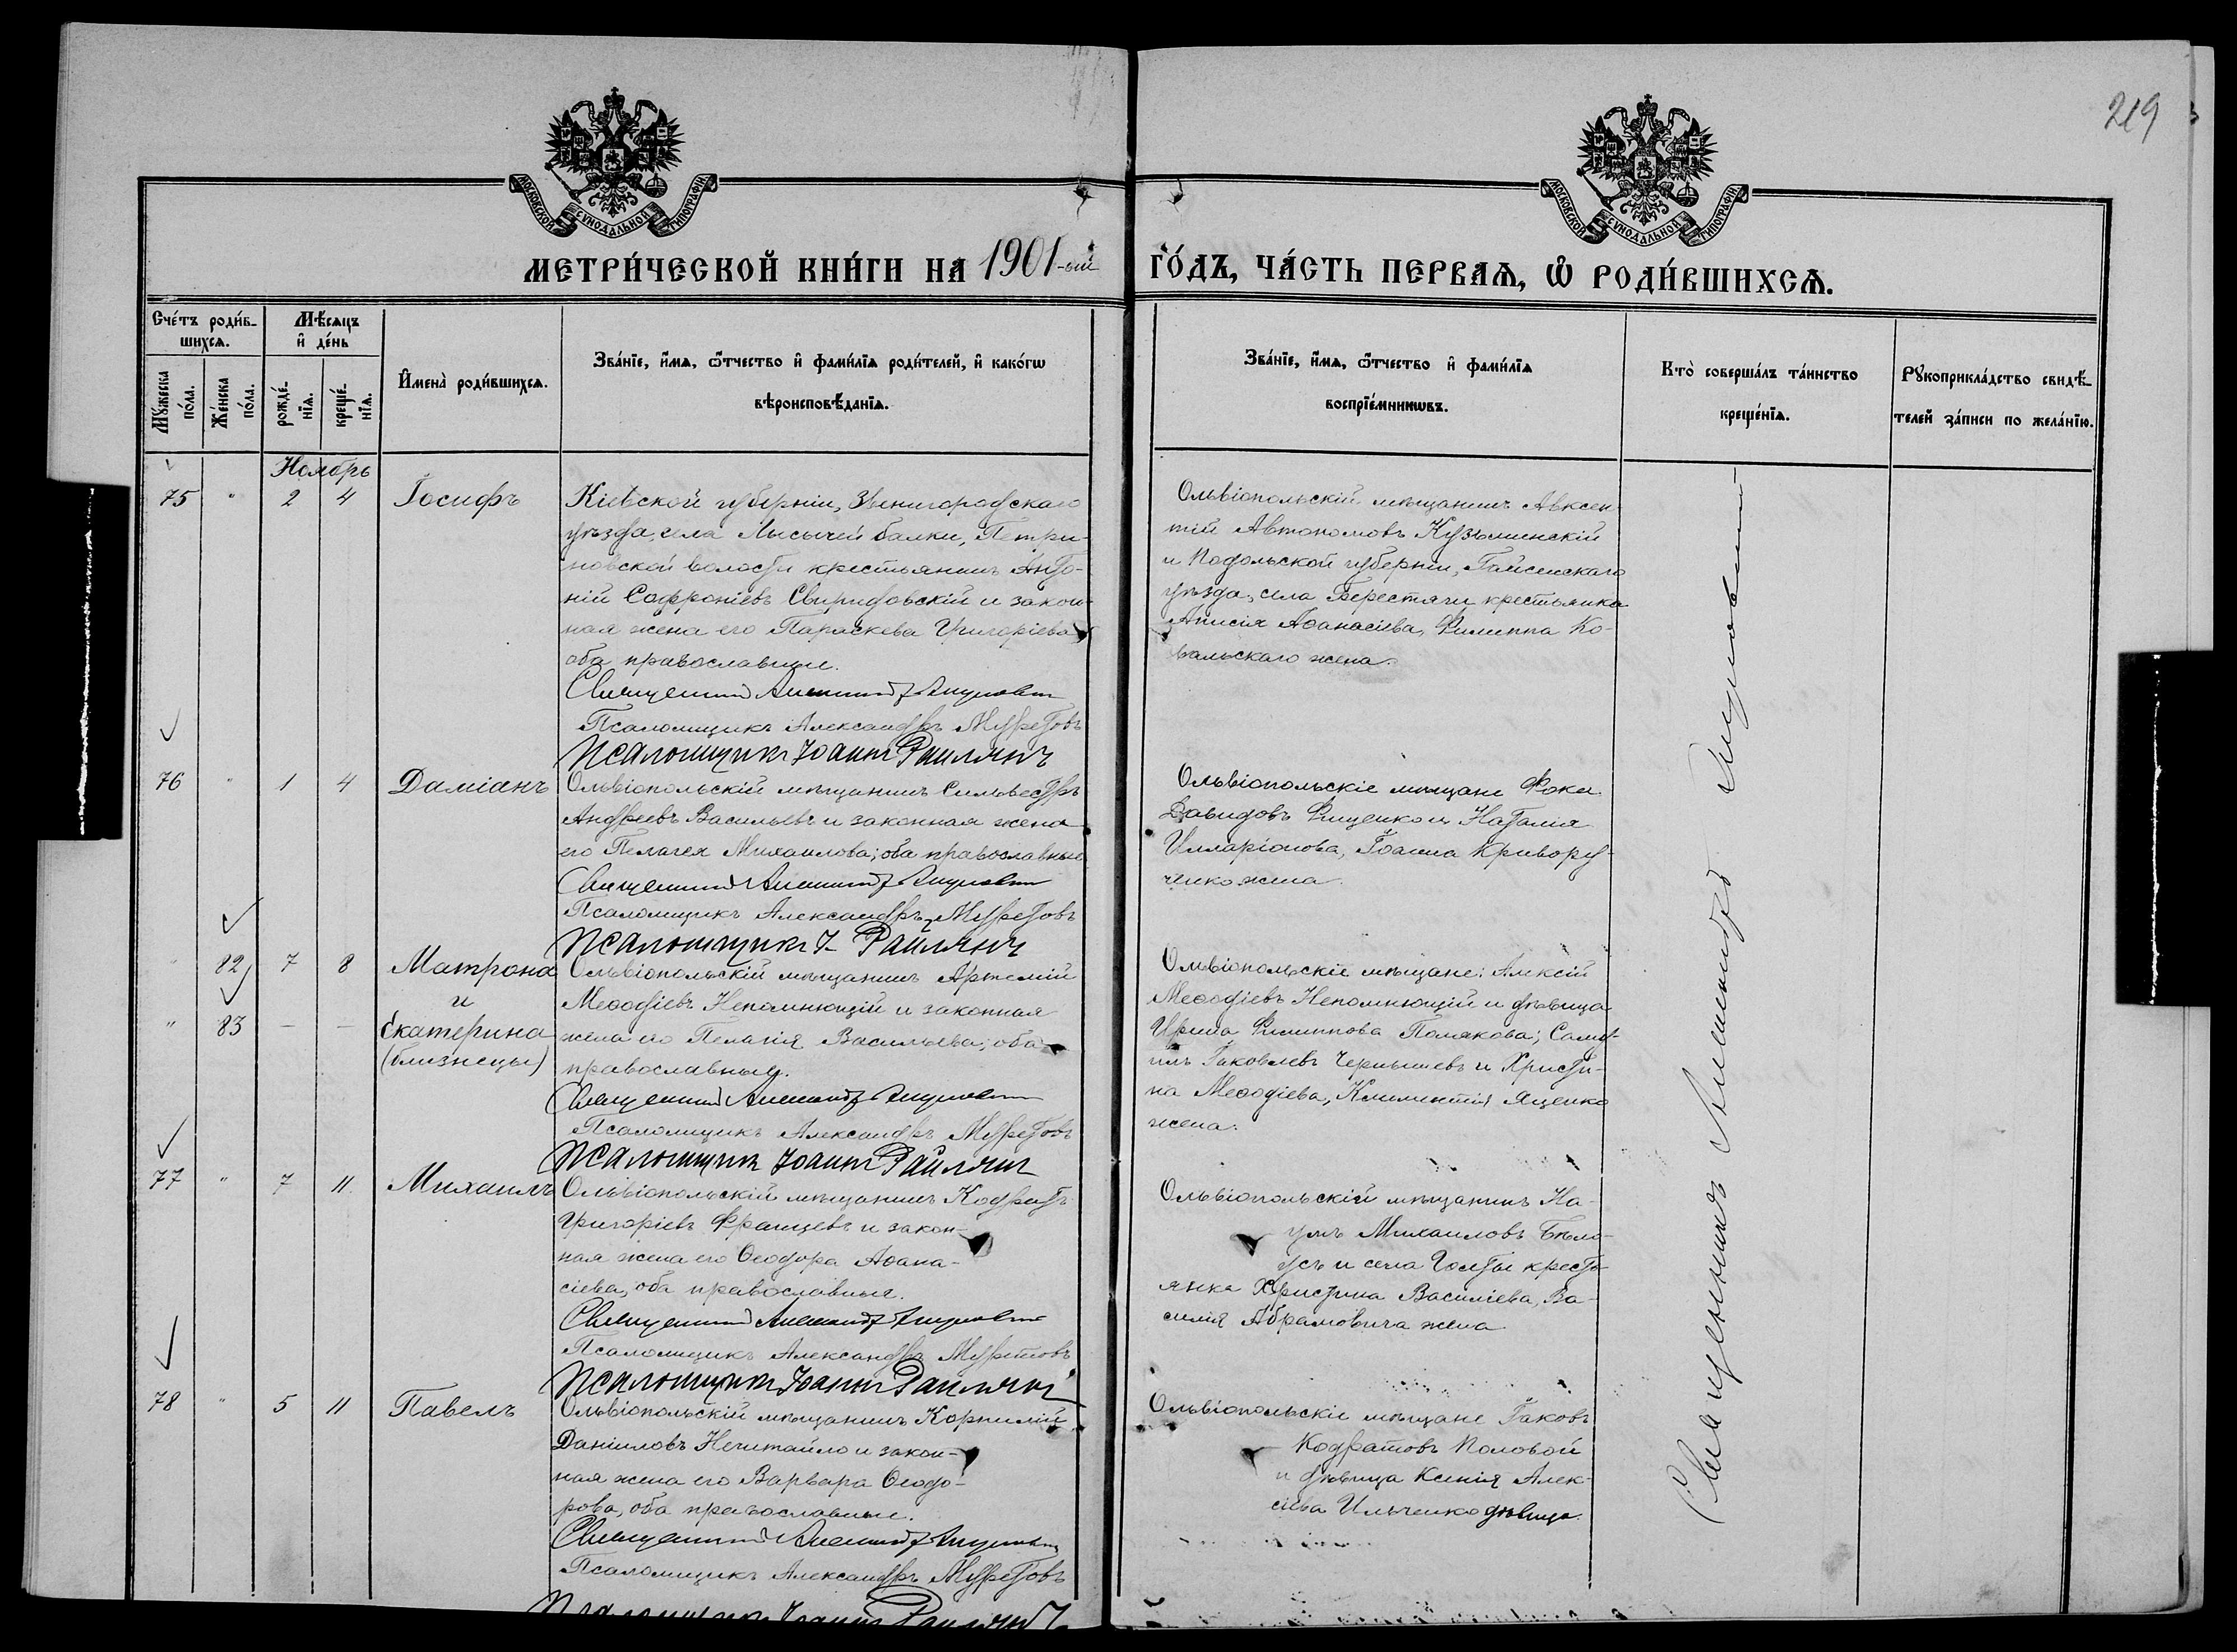 219
МОСКОВСКОЙ СУНОДАЛЬНОЙ ТИПОГРАФІИ
МОСКОВСКОЙ СУНОДАЛЬНОЙ ТИПОГРАФІИ
МЕТРИ́ЧЕСКОЙ КНИ́ГИ НА 1901-ый ГО́ДЪ, ЧА́СТЬ ПЕРВАѦ, Ѡ҆ РОДИ́ВШИХСѦ.
Сче́тъ роди́в-
шихсѧ.
Мꙋ́жеска
по́ла.
Же́нска
по́ла.
Мѣ́сѧцъ
и҆ де́нь
рожде́-
нїѧ.
креще́-
нїѧ.
И҆мена̀ роди́вшихсѧ.
Зва́нїе, и҆́мѧ, ѻ҆́тчество и҆ фами́лїѧ роди́телей, и҆ како́гѡ
вѣроисповѣ́данїѧ.
Зва́нїе, и҆́мѧ, ѻ҆́тчество и҆ фами́лїѧ
воспрїе́мникѡвъ.
Кто̀ соверша́лъ та́инство
креще́нїѧ.
Рꙋкоприкла́дство свидѣ́-
телей за́писи по жела́нїю.
Ноябрь
75 " 2 4 Іосифъ
Кіевской губерніи, Звенигородскаго
уѣзда, села Лысычей балки, Петри-
новской волости крестьянинъ Анто-
ній Софроніевъ Свиридовскій и закон-
ная жена его Параскева Григоріева
оба православные.
Священникъ
Псаломщикъ Александръ Муретовъ
Псаломщикъ Іоаннъ Раилянъ
Ольвіопольскій мѣщанинъ Авксен-
тій Автономовъ Кузьминскій
и Подольской губерніи, Гайсинскаго
уѣзда, села Берестяги крестьянка
Анисія Аѳанасіева, Филиппа Ко-
вальскаго жена.
76 " 1 4 Даміанъ
Ольвіопольскій мѣщанинъ Сильвестръ
Андреевъ Васильевъ и законная жена
его Пелагея Михаилова; оба православные
Священникъ
Псаломщикъ Александръ Муретовъ
Псаломщикъ І. Раилянъ
Ольвіопольскіе мѣщане Фока
Давидовъ Фищенко и Наталія
Илларіонова, Іоанна Кривору-
ченко жена.
" 82 7 8 Матрона
и
" 83 — — Екатерина
(близнецы)
Ольвіопольскій мѣщанинъ Артемій
Меѳодіевъ Непомнющій и законная
жена его Пелагія Васильева; оба
православные.
Священникъ
Псаломщикъ Александръ Муретовъ
Псаломщикъ Іоаннъ Раилянъ
Ольвіопольскіе мѣщане: Алексій
Меѳодіевъ Непомнющій и дѣвица
Ирина Филиппова Полякова; Саму-
илъ Іаковлевъ Чернышевъ и Христи-
на Меѳодіева, Климентія Яценко
жена.
77 " 7 11 Михаилъ
Ольвіопольскій мѣщанинъ Кодратъ
Григоріевъ Францевъ и закон-
ная жена его Ѳеодора Аѳана-
сіева, оба православные.
Священникъ
Псаломщикъ Александръ Муретовъ
Псаломщикъ Іоаннъ Раилянъ
Ольвіопольскій мѣщанинъ На-
умъ Михаиловъ Бѣло-
усъ и села Голты кресть-
янка Христина Василіева, Ва-
силія Абрамовича жена
78 " 5 11 Павелъ
Ольвіопольскій мѣщанинъ Корнилій
Даніиловъ Нечитайло и закон-
ная жена его Варвара Ѳеодо-
рова, оба православные.
Священникъ
Псаломщикъ Александръ Муретовъ
Псаломщикъ Іоаннъ Раилянъ
Ольвіопольскіе мѣщане Іаковъ
Кодратовъ Половой
и дѣвица Ксенія Алек-
сіева Ильченко дѣвица.
Священникъ Александръ